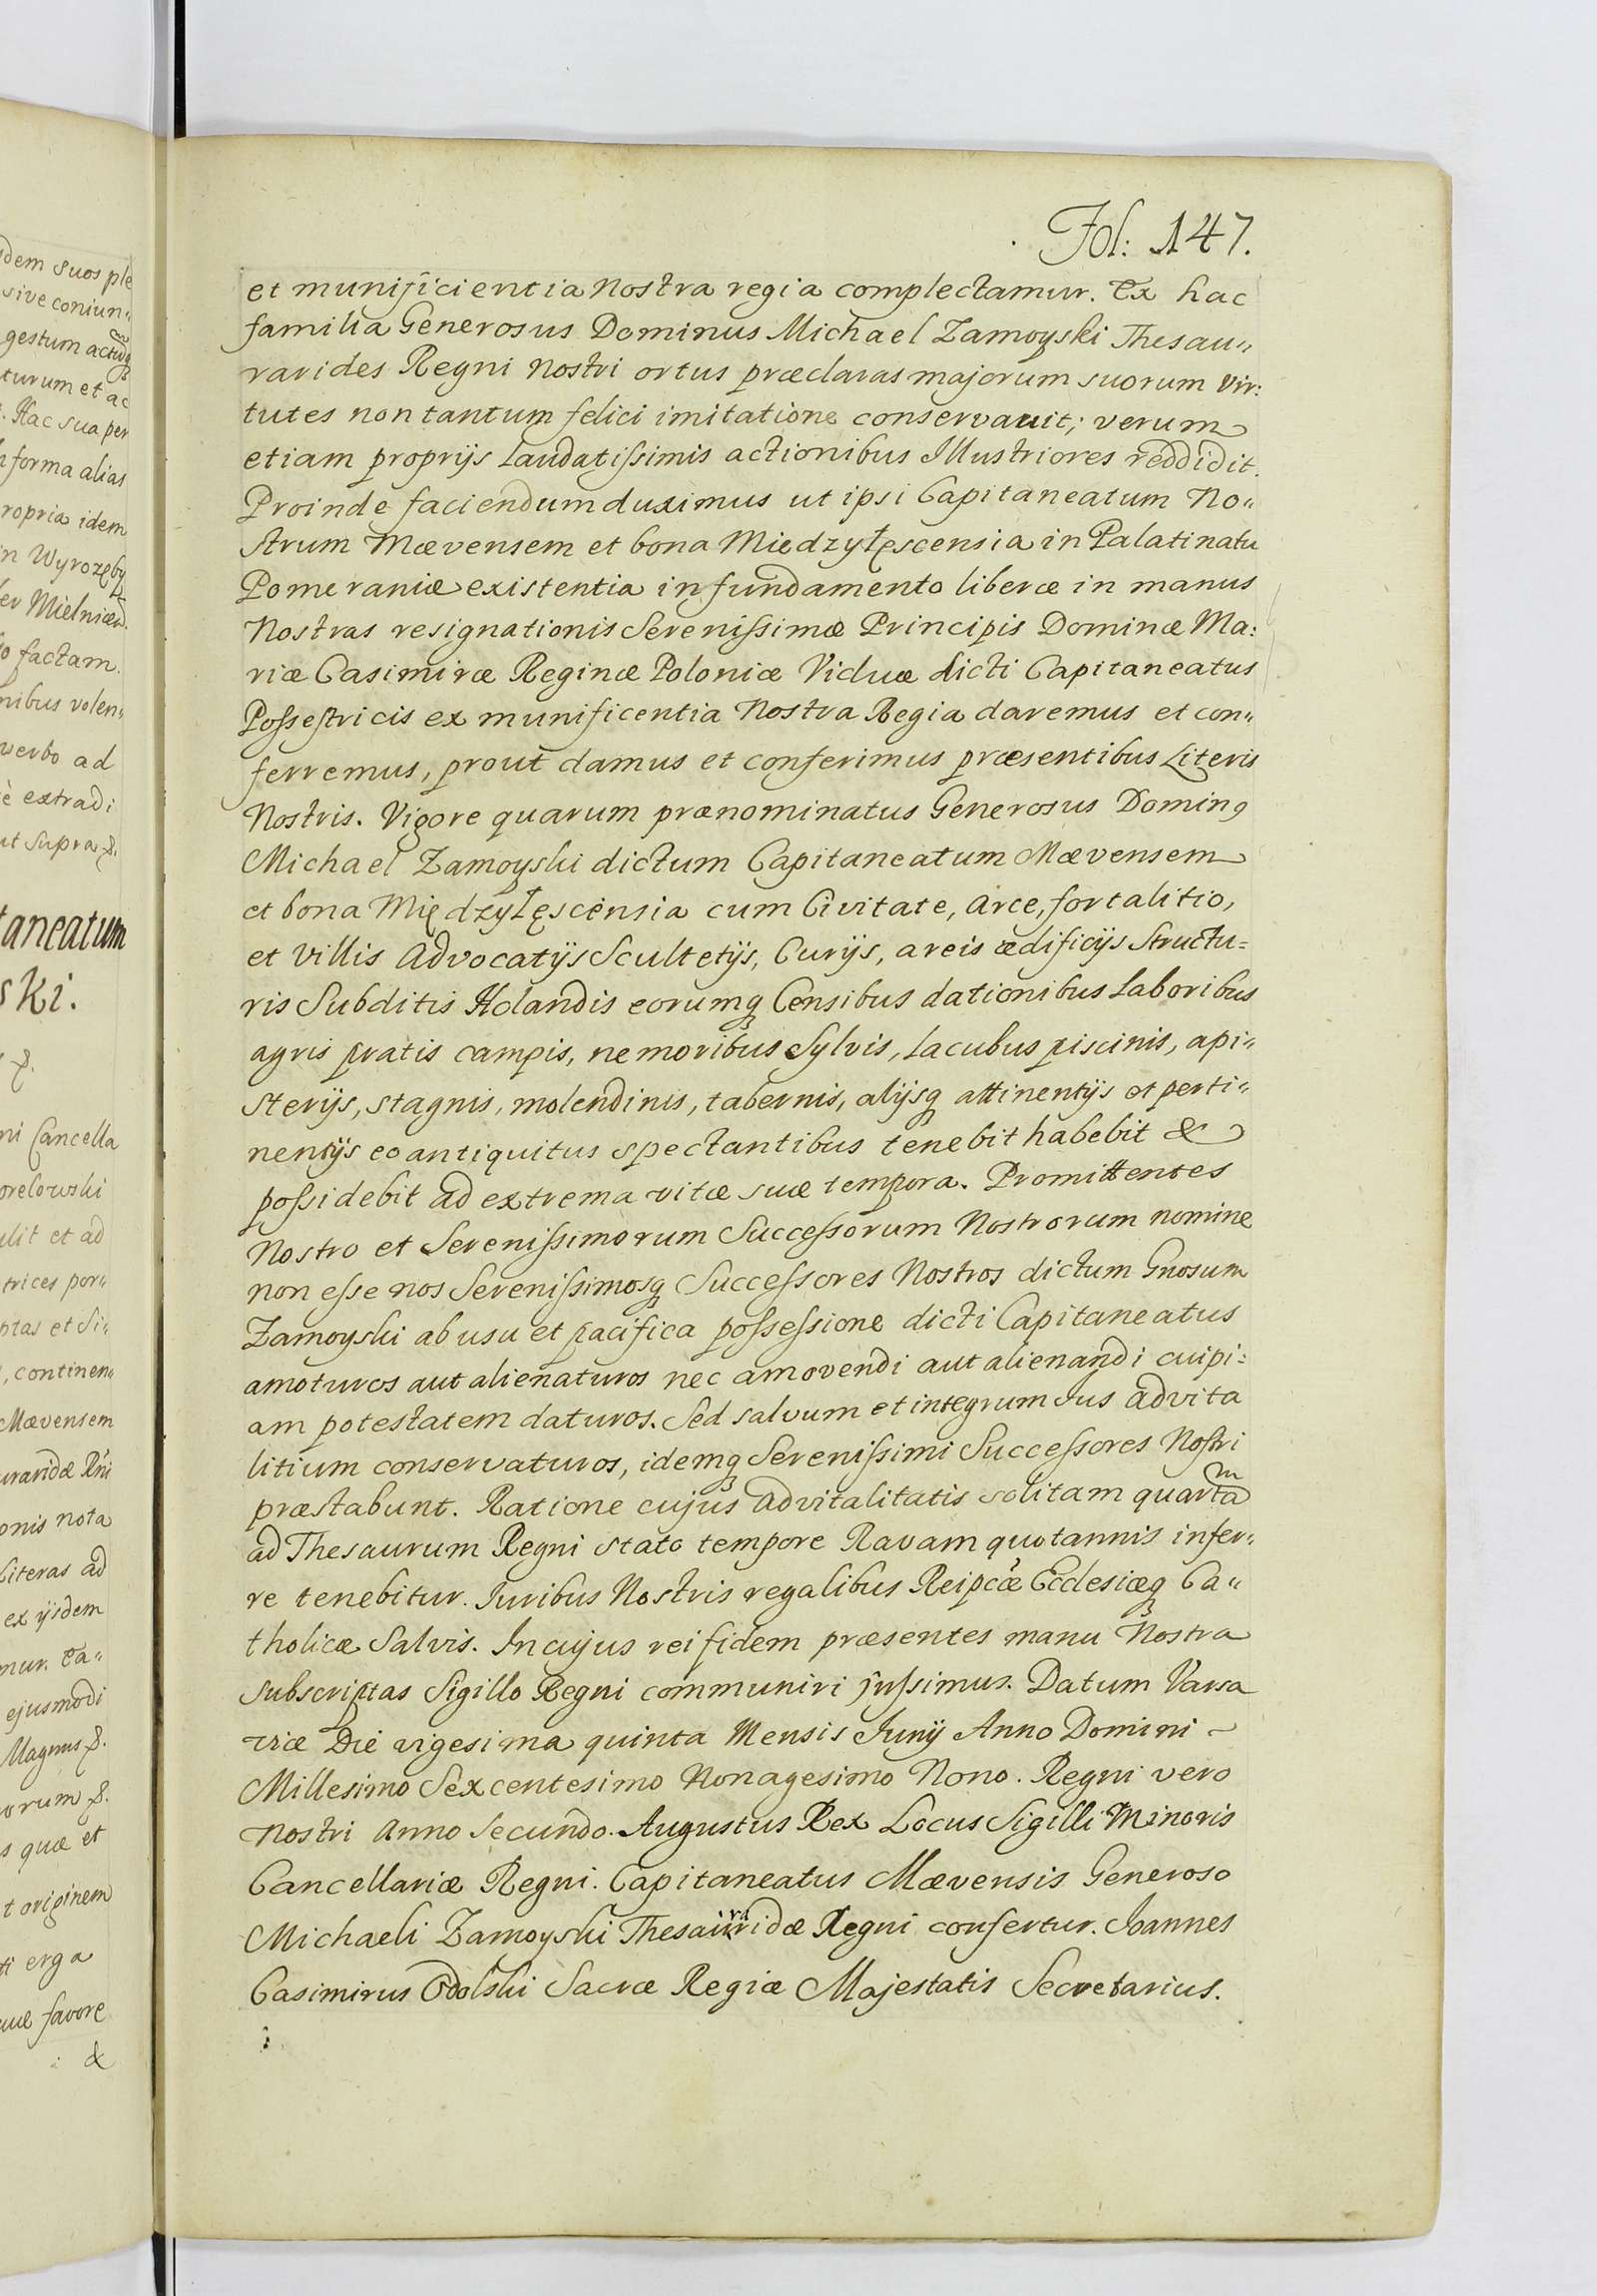 Fol: 147.
et munificientia Nostra regia complectamur. Ex hac
familia Generosus Dominus Michael Zamoyski Thesau„
rarides Regni Nostri ortus præclaras majorum suorum vir:
tutes non tantum felici imitatione conservauit; verum
etiam proprijs Laudatissimis actionibus Illustriores reddidit.
Proinde faciendum duximus ut ipsi Capitaneatum No„
strum Mævensem et bona Miedzyłęscensia in Palatinatu
Pomeraniæ existentia in fundamento liberæ in manus
Nostras resignationis Serenissimæ Principis Dominæ Ma:
riæ Casimiræ Reginæ Poloniæ Viduæ dicti Capitaneatus
Possestricis ex munificentia Nostra Regia daremus et con„
ferremus, prout damus et conferimus præsentibus Literis
Nostris. Vigore quarum prænominatus Generosus Doming
Michael Zamoyski dictum Capitaneatum Mævensem
et bona Międzyłęscensia cum Civitate, Arce, fortalitio,
et Villis Advocatijs Scultetijs, Curijs, areis ædificijs Structu=
ris Subditis Holandis eorumq Censibus dationibus Laboribus
agris pratis campis, nemoribus Sylvis, Lacubus piscinis, api„
sterijs, stagnis, molendinis, tabernis, alijsq attinentijs et perti„
nentijs eo antiquitus spectantibus tenebit habebit &
possidebit ad extrema vitæ suæ tempora. Promittentes
Nostro et Serenissimorum Successorum Nostrorum nomine
non esse nos Serenissimosq Successores Nostros dictum Gnosum
Zamoyski ab usu et pacifica possessione dicti Capitaneatus
amoturos aut alienaturos nec amovendi aut alienandi cuipi=
am potestatem daturos. Sed salvum et integrum Jus advita
litium conservaturos, idemq Serenissimi Successores Nostri
præstabunt. Ratione cujus advitalitatis solitam quartam
ad Thesaurum Regni stato tempore Ravam quotannis infer„
re tenebitur. Juribus Nostris regalibus Reipcæ Ecclesiæq Ca„
tholicæ Salvis. In cujus rei fidem præsentes manu Nostra
subscriptas Sigillo Regni communiri jussimus. Datum Varsa
viæ Die vigesima quinta Mensis Junij Anno Domini ~
Millesimo Sexcentesimo Nonagesimo Nono. Regni vero
Nostri Anno Secundo. Augustus Rex Locus Sigilli Minoris
Cancellariæ Regni. Capitaneatus Mævensis Generoso
Michaeli Zamoyski Thesauraridæ Regni confertur. Joannes
Casimirus Odolski Sacræ Regiæ Majestatis Secretarius.